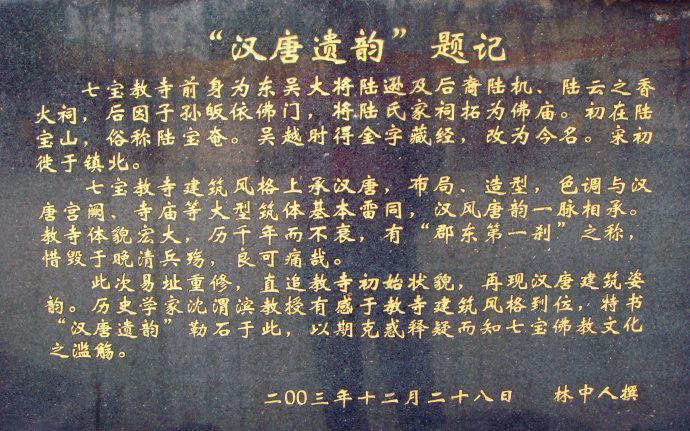 “汉唐遗韵”题记
七宝教寺前身为东吴大将陆逊及后裔陆机、陆云之香
火祠，后因子孙皈依佛门，将陆氏家祠拓为佛庙。初在陆
宝山，俗称陆宝奄。吴越时得金字藏经，改为今名。宋初
徙于镇北。
七宝教寺建筑风格上承汉唐，布局、造型，色调与汉
唐宫阙、寺庙等大型筑体基本雷同，汉风唐韵一脉相承。
教寺体貌宏大，历千年而不衰，有“郡东第一刹”之称，
惜毁于晚清兵殇，良可痛哉。
此次易址重修，直追教寺初始状貌，再现汉唐建筑姿
韵。历史学家沈渭滨教授有感于教寺建筑风格到位，特书
“汉唐遗韵”勒石于此，以期克惑释疑而知七宝佛教文化
之滥觞。
二00三年十二月二十八日 林中人撰